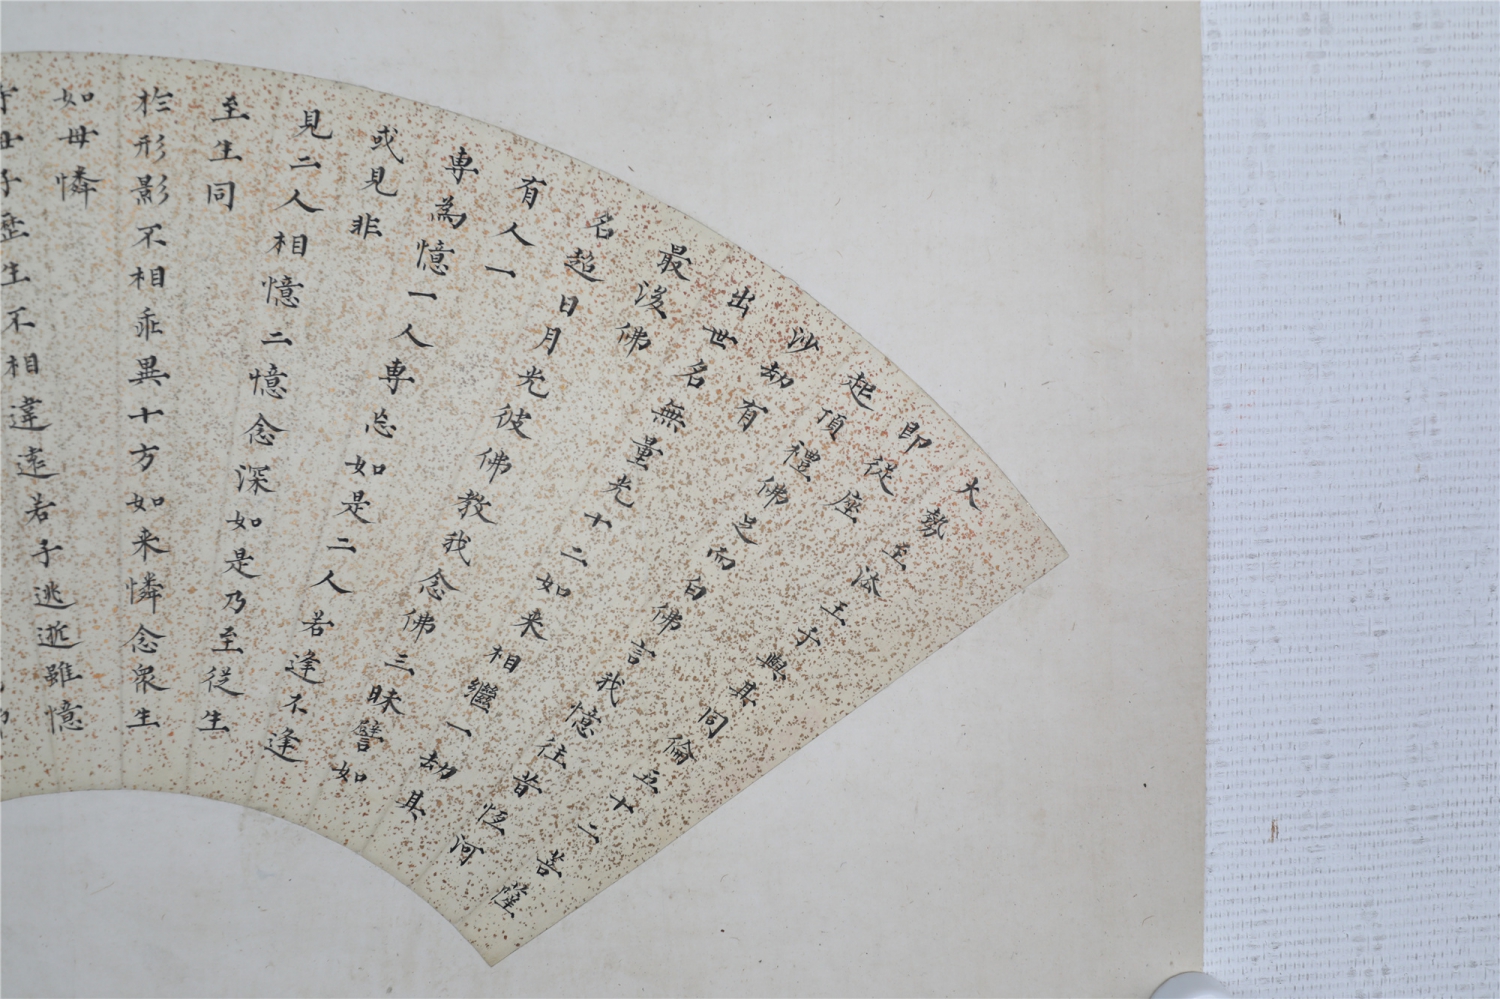 大勢至法王子與其同倫五十二菩薩
即從座
起頂禮佛足而白佛言我憶往昔恒河
沙劫有
出世名無量光十二如来相繼一劫其
最後佛
名超日月光彼佛教我念佛三昧譬如
有人一
専為憶一人専忘如是二人若逢不逢
或見非
見二人相憶二憶念深如是乃至從生
至生同
於形影不相乖異十方如来憐念衆生
如母憐
母子歷生不相違遠若子逃逝雖憶